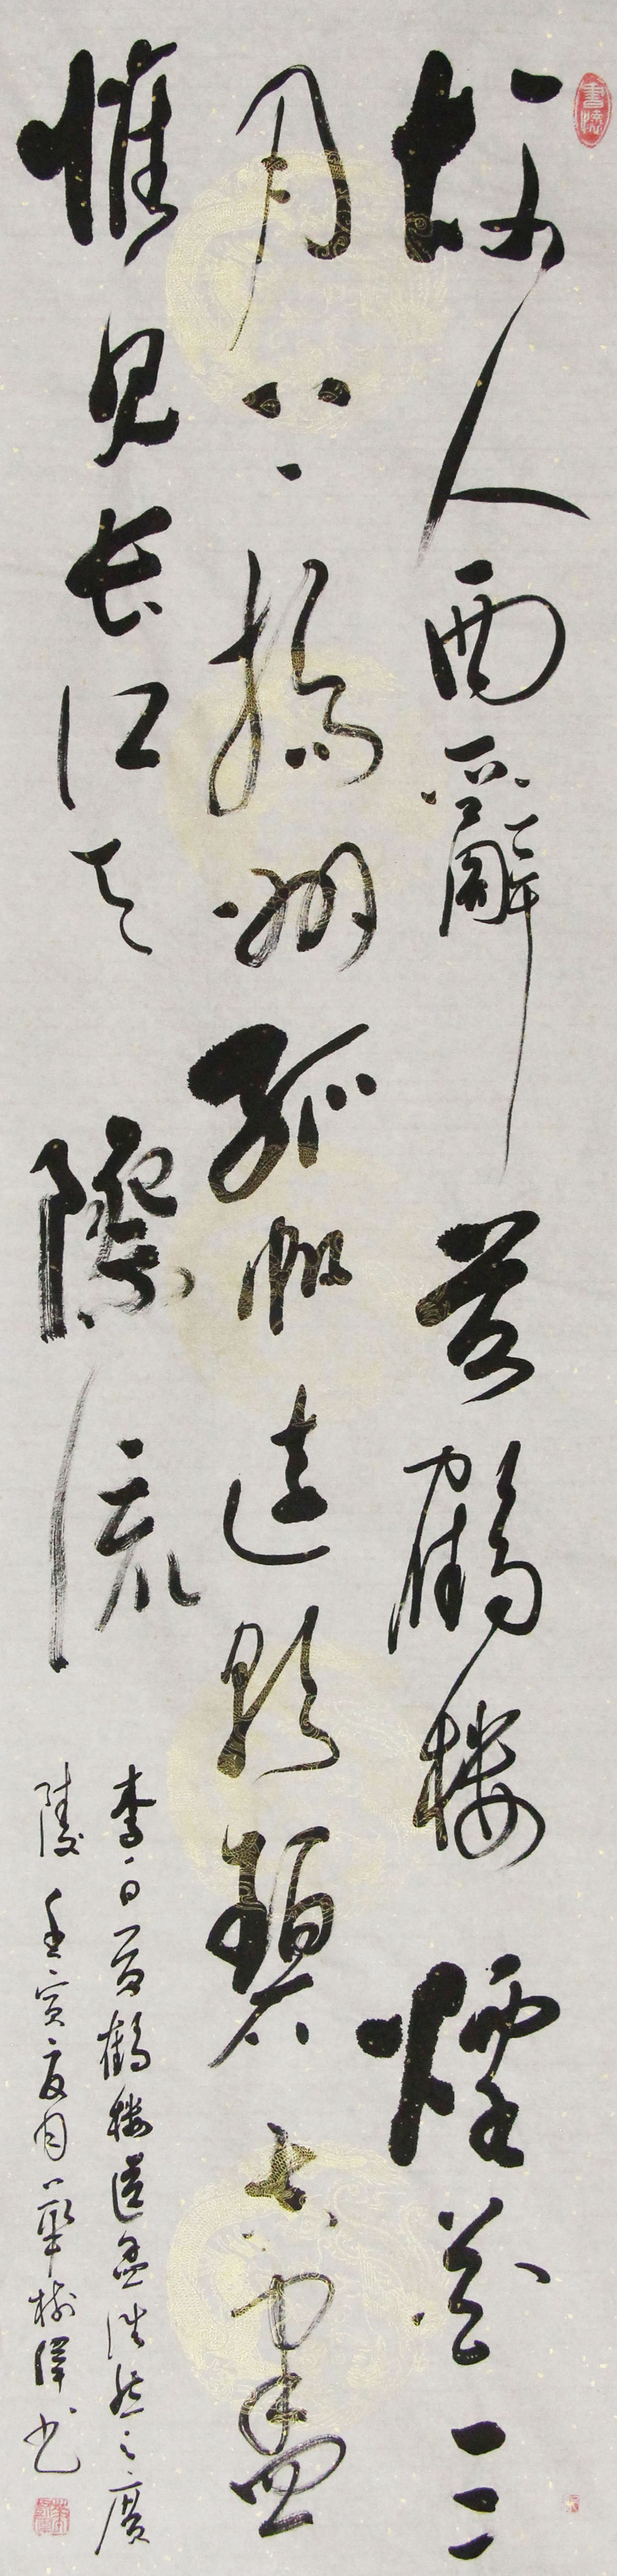 故人西辭黃鶴樓煙花三
月下揚州孤帆遠影碧空盡
惟見長江天際流
李白黃鶴樓送孟浩然之廣
陵壬寅夏月樹澤书